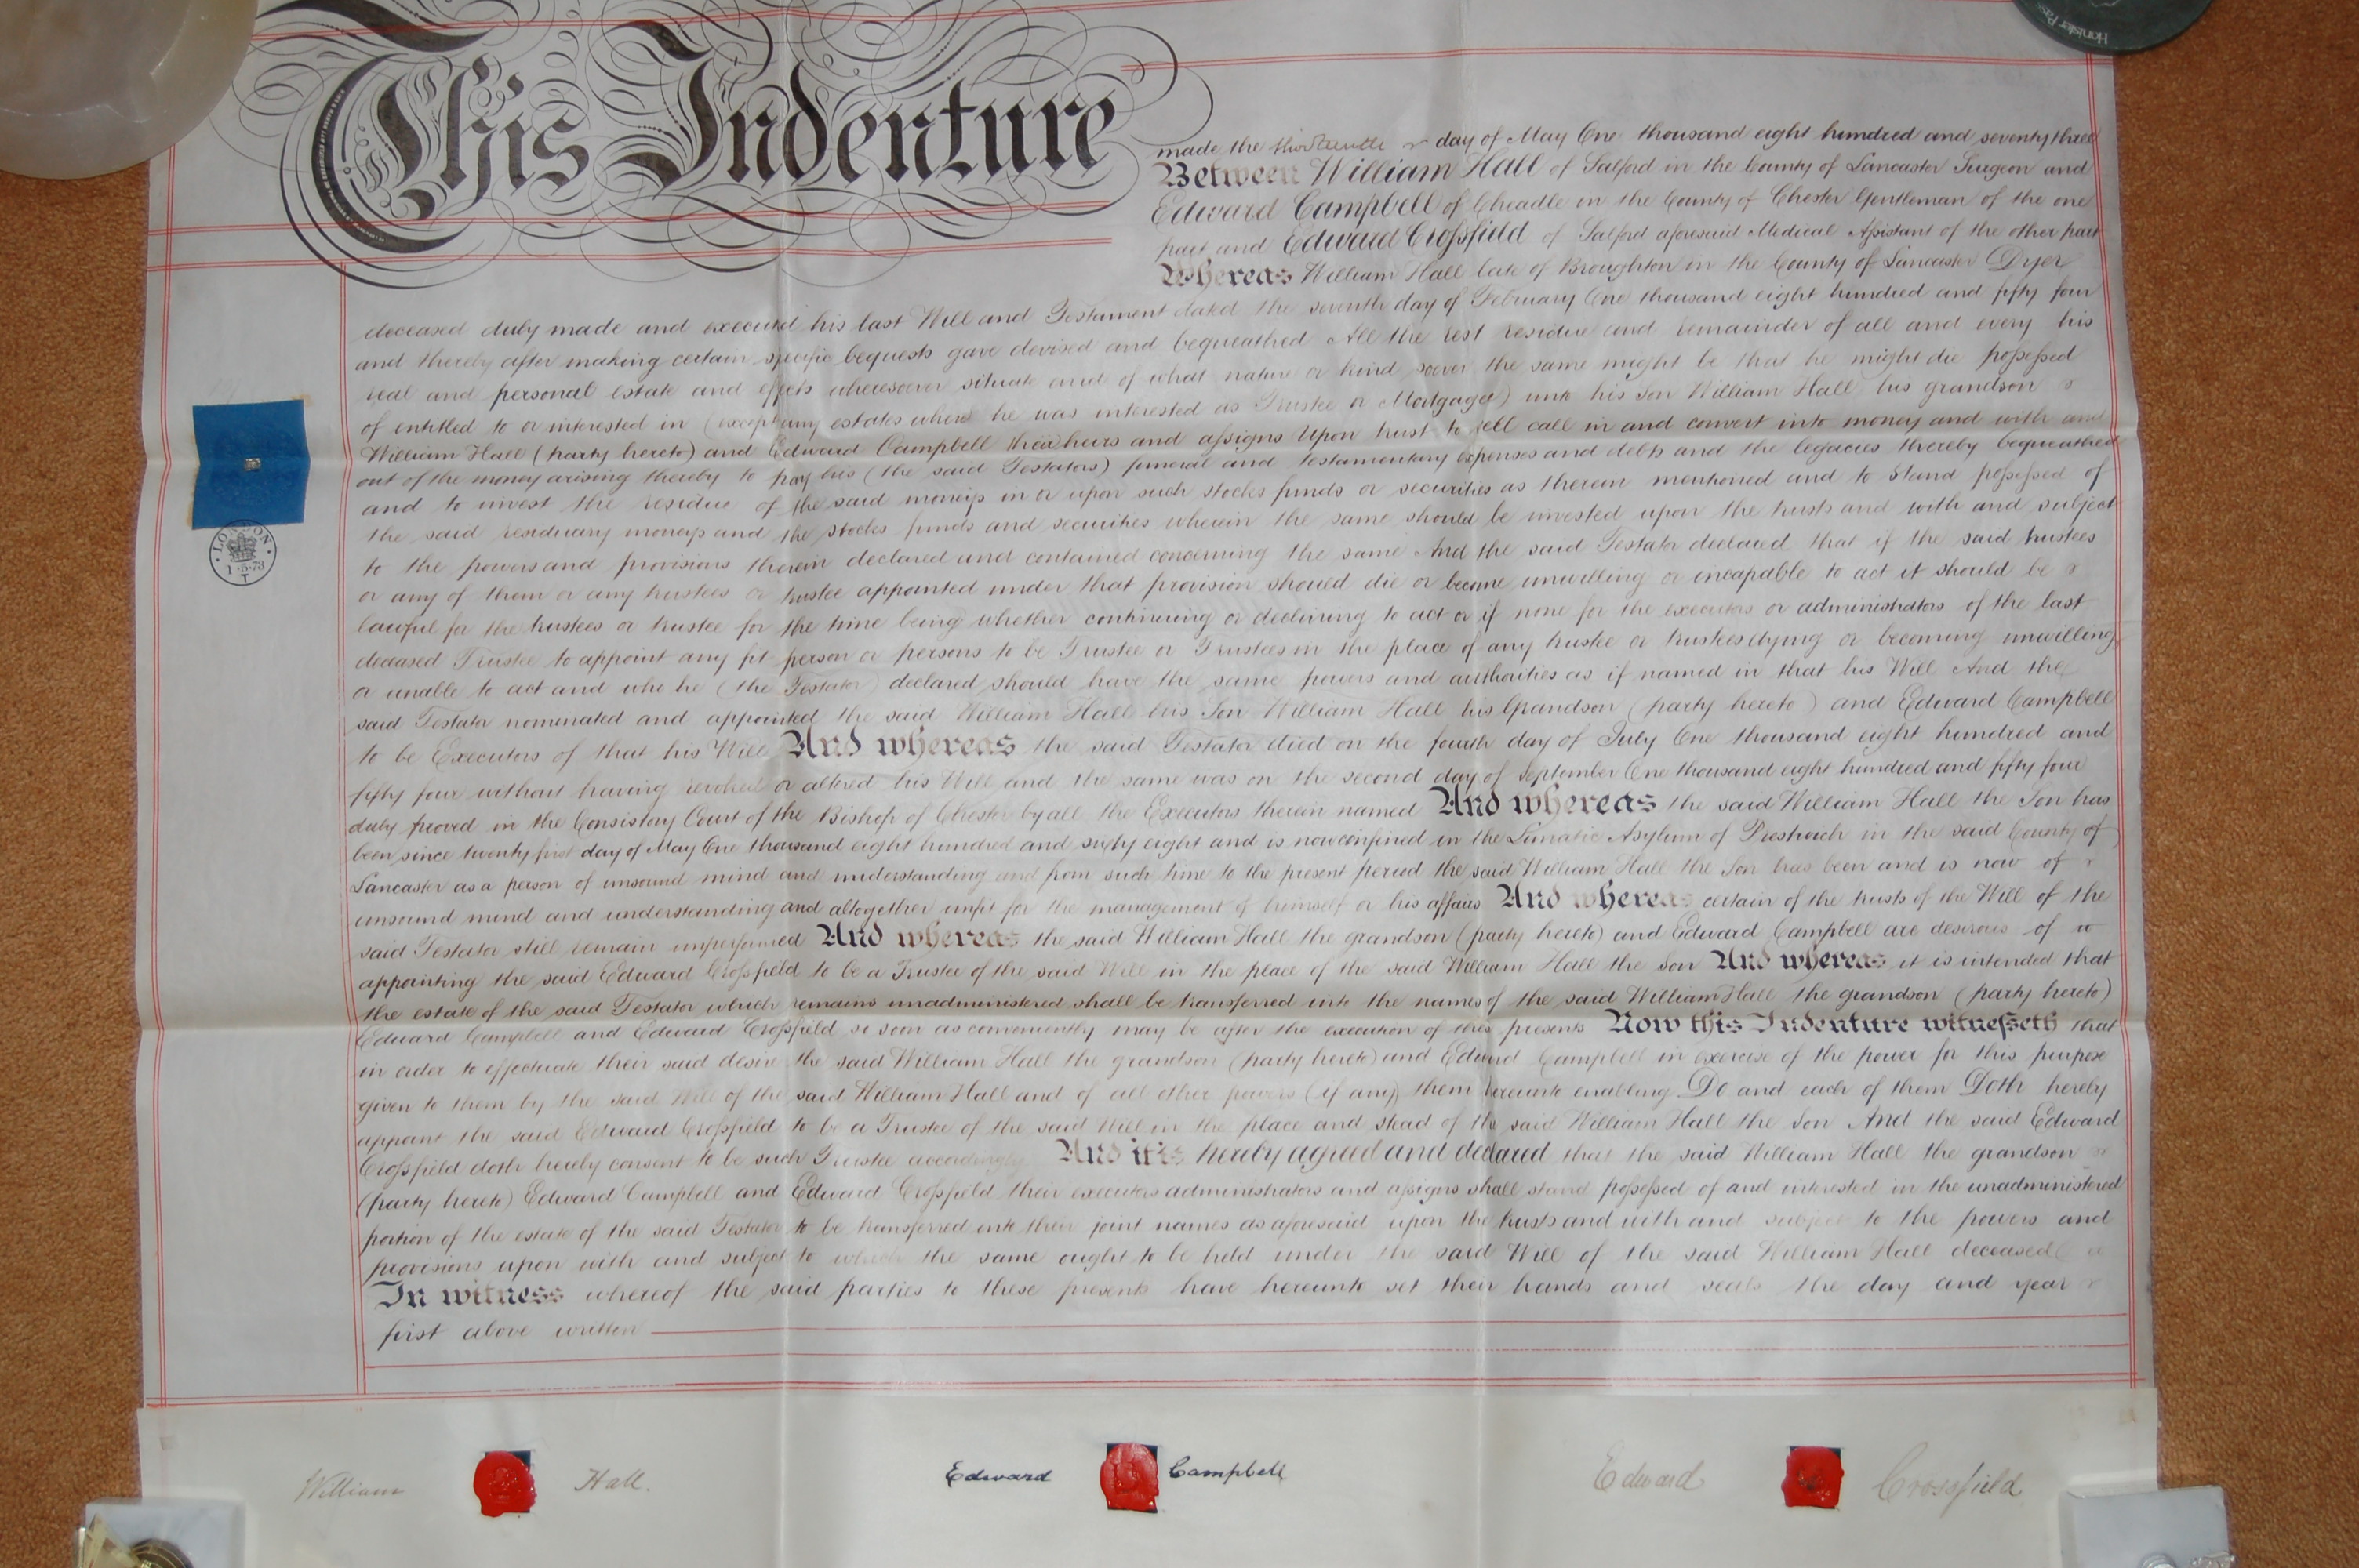 This Indenture
made the thirteenth day of May One thousand eight hundred and seventy three
Between William Hall of Salford in the County of Lancaster Surgeon and
Edward Campbell of Cheadle in the County of Chester Gentleman of the one
part and Edward Croſsfield of Salford aforesaid Medical Aſsistant of the other part
Whereas William Hall late of Broughton in the County of Lancaster Dyer
deceased duly made and executed his last Will and Testament dated the seventh day of February One thousand eight hundred and fifty four
and thereby after making certain specific bequests gave devised and bequeathed All the rest residue and remainder of all and every his
real and personal estate and effects wheresoever situate and of what nature or kind soever the same might be that he might die poſseſsed
of entitled to or interested in (except any estates where he was interested as Trustee or Mortgagee) unto his Son William Hall his grandson
William Hall (party hereto) and Edward Campbell their heirs and aſsigns Upon trust to sell call in and convert into money and with and
out of the money arising thereby to pay his (the said Testators) funeral and testamentary expenses and debts and the legacies thereby bequeathed
and to invest the residue of the said moneys in or upon such stocks funds or securities as therein mentioned and to stand poſseſsed of
the said residuary moneys and the stocks funds and securities wherein the same should be invested upon the trusts and with and subject
to the powers and provisions therein declared and contained concerning the same And the said Testator declared that if the said trustees
or any of them or any trustees or trustee appointed under that provision should die or become unwilling or incapable to act it should be
lawful for the trustees or trustee for the time being whether continuing or declining to act or if none for the executors or administrators of the last
deceased Trustee to appoint any fit person or persons to be Trustee or Trustees in the place of any trustee or trustees dying or becoming unwilling
or unable to act and who he (the Testator) declared should have the same powers and authorities as if named in that his Will And the
said Testator nominated and appointed the said William Hall his Son William Hall his Grandson (party hereto) and Edward Campbell
to be Executors of that his Will And whereas the said Testator died on the fourth day of July One thousand eight hundred and
fifty four without having revoked or altered his Will and the same was on the second day of September One thousand eight hundred and fifty four
duly proved in the Consistory Court of the Bishop of Chester by all the Executors therein named And whereas the said William Hall the Son has
been since twenty first day of May One thousand eight hundred and sixty eight and is now confined in the Lunatic Asylum of Prestwich in the said County of
Lancaster as a person of unsound mind and understanding and from such time to the present period the said William Hall the Son has been and is now of
unsound mind and understanding and altogether unfit for the management of himself or his affairs And whereas certain of the trusts of the Will of the
said Testator still remain unperformed And whereas the said William Hall the grandson (party hereto) and Edward Campbell are desirous of
appointing the said Edward Croſsfield to be a Trustee of the said Will in the place of the said William Hall the Son And whereas it is intended that
the estate of the said Testator which remains unadministered shall be transferred into the names of the said William Hall the grandson (party hereto)
Edward Campbell and Edward Croſsfield so soon as conveniently may be after the execution of these presents Now this Indenture witneſseth that
in order to effectuate their said desire the said William Hall the grandson (party hereto) and Edward Campbell in exercise of the power for this purpose
given to them by the said Will of the said William Hall and of all other powers (if any) them hereunto enabling Do and each of them Doth hereby
appoint the said Edward Croſsfield to be a Trustee of the said Will in the place and stead of the said William Hall the Son And the said Edward
Croſsfield doth hereby consent to be such Trustee accordingly And it is hereby agreed and declared that the said William Hall the grandson
(party hereto) Edward Campbell and Edward Croſsfield their executors administrators and aſsigns shall stand poſseſsed of and interested in the unadministered
portion of the estate of the said Testator to be transferred into their joint names as aforesaid upon the trusts and with and subject to the powers and
provisions upon with and subject to which the same ought to be held under the said Will of the said William Hall deceased
In witness whereof the said parties to these presents have hereunto set their hands and seals the day and year
first above written
LONDON
1.5.73
T
William Hall.
Edward Campbell
Edward Crossfield